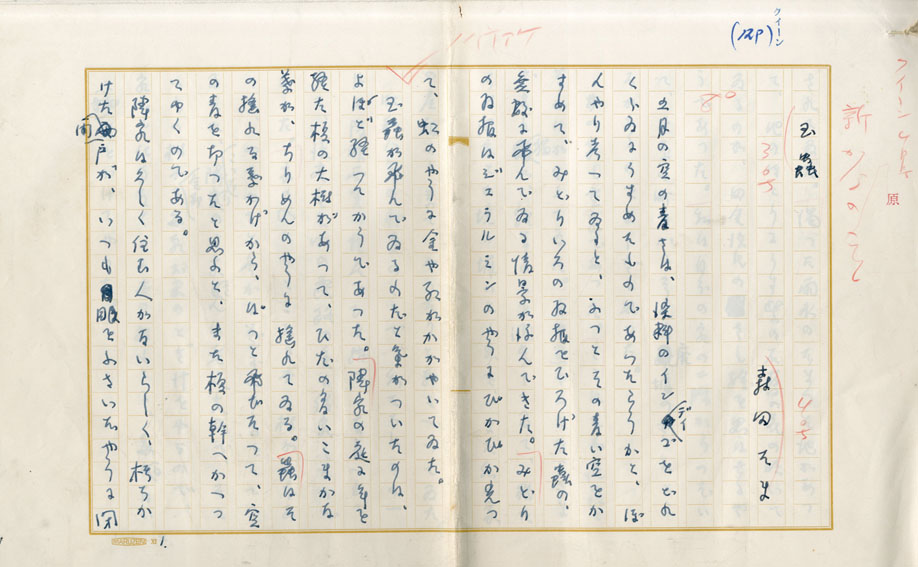 クイーン
(12P)
原
新かなのこと
玉蟲
森田たま
五月の空の青さは、染料のインディゴをどれ
くらゐうすめたものであつたらうかと、ぼ
んやり考つてゐると、ふつとその青い空をか
すめてみどりいろの羽根をひろげた蟲の、
無数に飛んでゐる情景が浮んできた。みどり
の羽根はジェラルミンのやうにぴかぴか光つ
て、虹のやうに金や紅がかがやいてゐた。
玉蟲が飛んでゐるのだと氣がついたのは、
よほど經つてからであつた。隣家の庭に年を
經た榎の大樹があつて、ひだの多いこまかな
葉が、ちりめんのやうに搖れてゐる。蟲はそ
の搖れる葉かげから、ぱつと飛びたつて、空
の青を切つたと思ふと、また榎の幹へかへつ
てゆくのである。
隣家は久しく住む人がないらしく、朽ちか
けた雨戸が、いつも眼をふさいだやうに閉